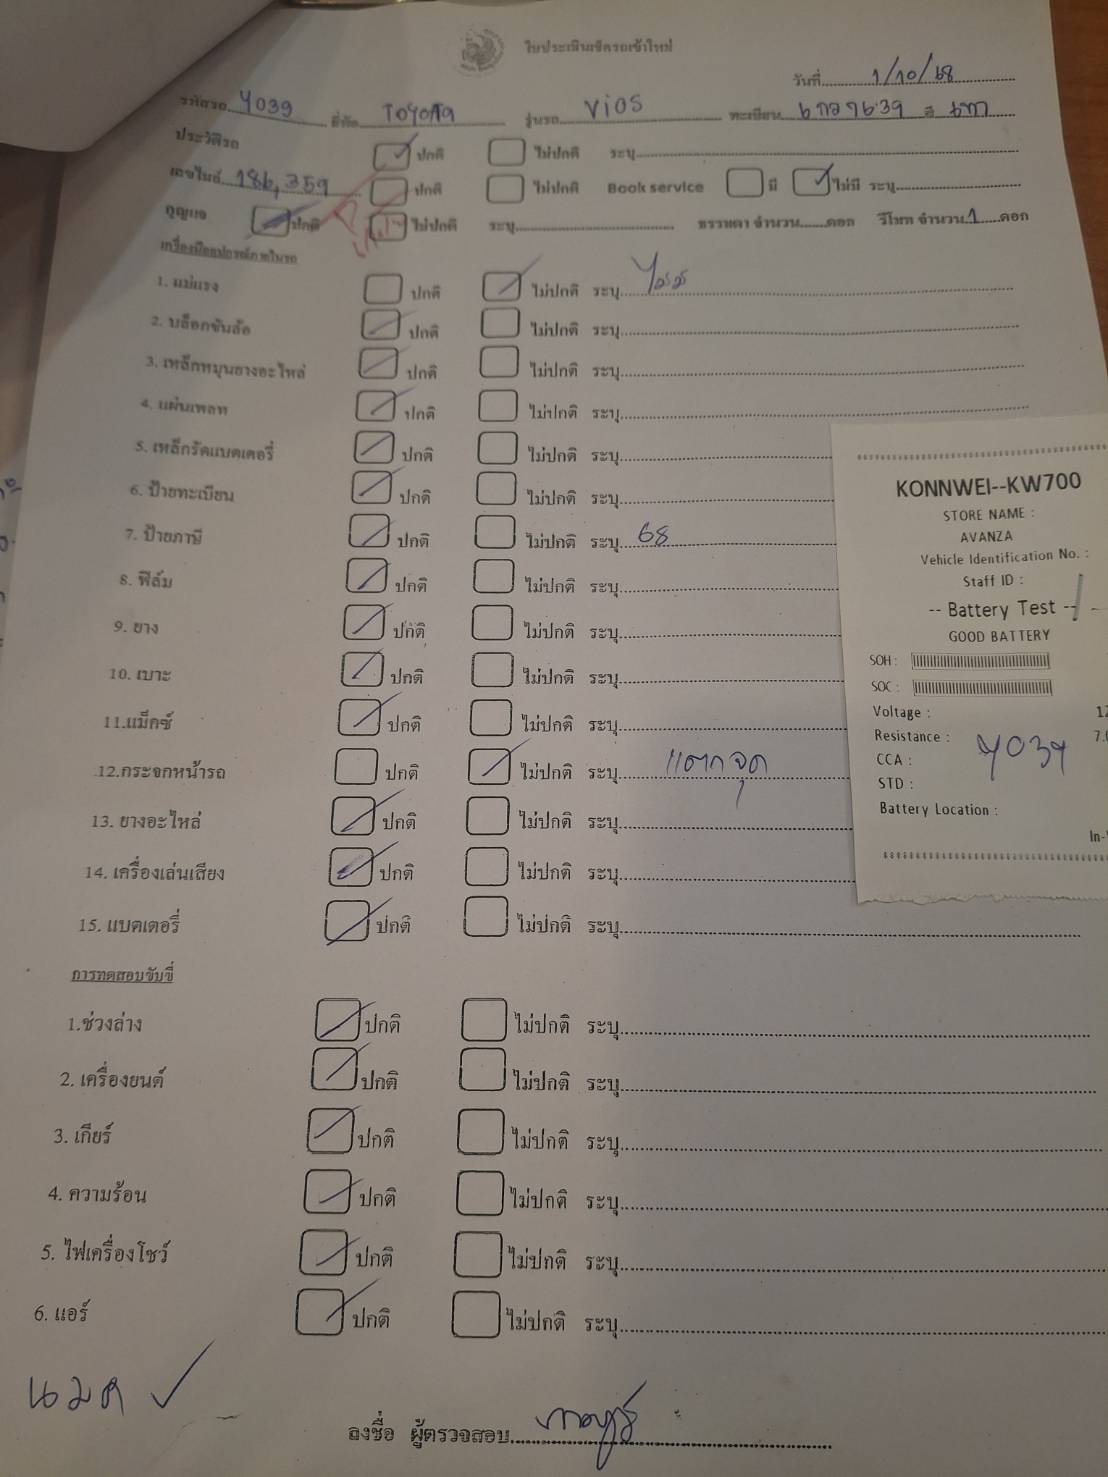 ใบประเมินเช็ครถเข้าใหม่
วันที่ 1/10/68
รหัสรถ 4039 ยี่ห้อ TOYOTA รุ่นรถ VIOS ทะเบียน 6กว 7639 สี เทา
ประวัติรถ ปกติ ไม่ปกติ ระบุ
เลขไมล์ 186,359 ปกติ ไม่ปกติ Book service มี ไม่มี ระบุ
กุญแจ ปกติ ไม่ปกติ ระบุ ธรรมดา จำนวน ดอก รีโมท จำนวน 1 ดอก
เครื่องมืออุปกรณ์ภายในรถ
1. แม่แรง ปกติ ไม่ปกติ ระบุ ไม่มี
2. บล็อกขันล้อ ปกติ ไม่ปกติ ระบุ
3. เหล็กหมุนยางอะไหล่ ปกติ ไม่ปกติ ระบุ
4. แผ่นเพลท ปกติ ไม่ปกติ ระบุ
5. เหล็กรัดแบตเตอรี่ ปกติ ไม่ปกติ ระบุ
6. ป้ายทะเบียน ปกติ ไม่ปกติ ระบุ
7. ป้ายภาษี ปกติ ไม่ปกติ ระบุ 68
8. ฟิล์ม ปกติ ไม่ปกติ ระบุ
9. ยาง ปกติ ไม่ปกติ ระบุ
10. เบาะ ปกติ ไม่ปกติ ระบุ
11.แม็กซ์ ปกติ ไม่ปกติ ระบุ
12.กระจกหน้ารถ ปกติ ไม่ปกติ ระบุ แตกจุด
13. ยางอะไหล่ ปกติ ไม่ปกติ ระบุ
14. เครื่องเล่นเสียง ปกติ ไม่ปกติ ระบุ
15. แบตเตอรี่ ปกติ ไม่ปกติ ระบุ
การทดสอบขับขี่
1.ช่วงล่าง ปกติ ไม่ปกติ ระบุ
2. เครื่องยนต์ ปกติ ไม่ปกติ ระบุ
3. เกียร์ ปกติ ไม่ปกติ ระบุ
4. ความร้อน ปกติ ไม่ปกติ ระบุ
5. ไฟเครื่องโชว์ ปกติ ไม่ปกติ ระบุ
6. แอร์ ปกติ ไม่ปกติ ระบุ
ลงชื่อ ผู้ตรวจสอบ
KONNWEI--KW700
STORE NAME :
AVANZA
Vehicle Identification No. :
Staff ID :
-- Battery Test --
GOOD BATTERY
SOH :
SOC :
Voltage : 12
Resistance : 7.
CCA : 4039
STD :
Battery Location :
In-